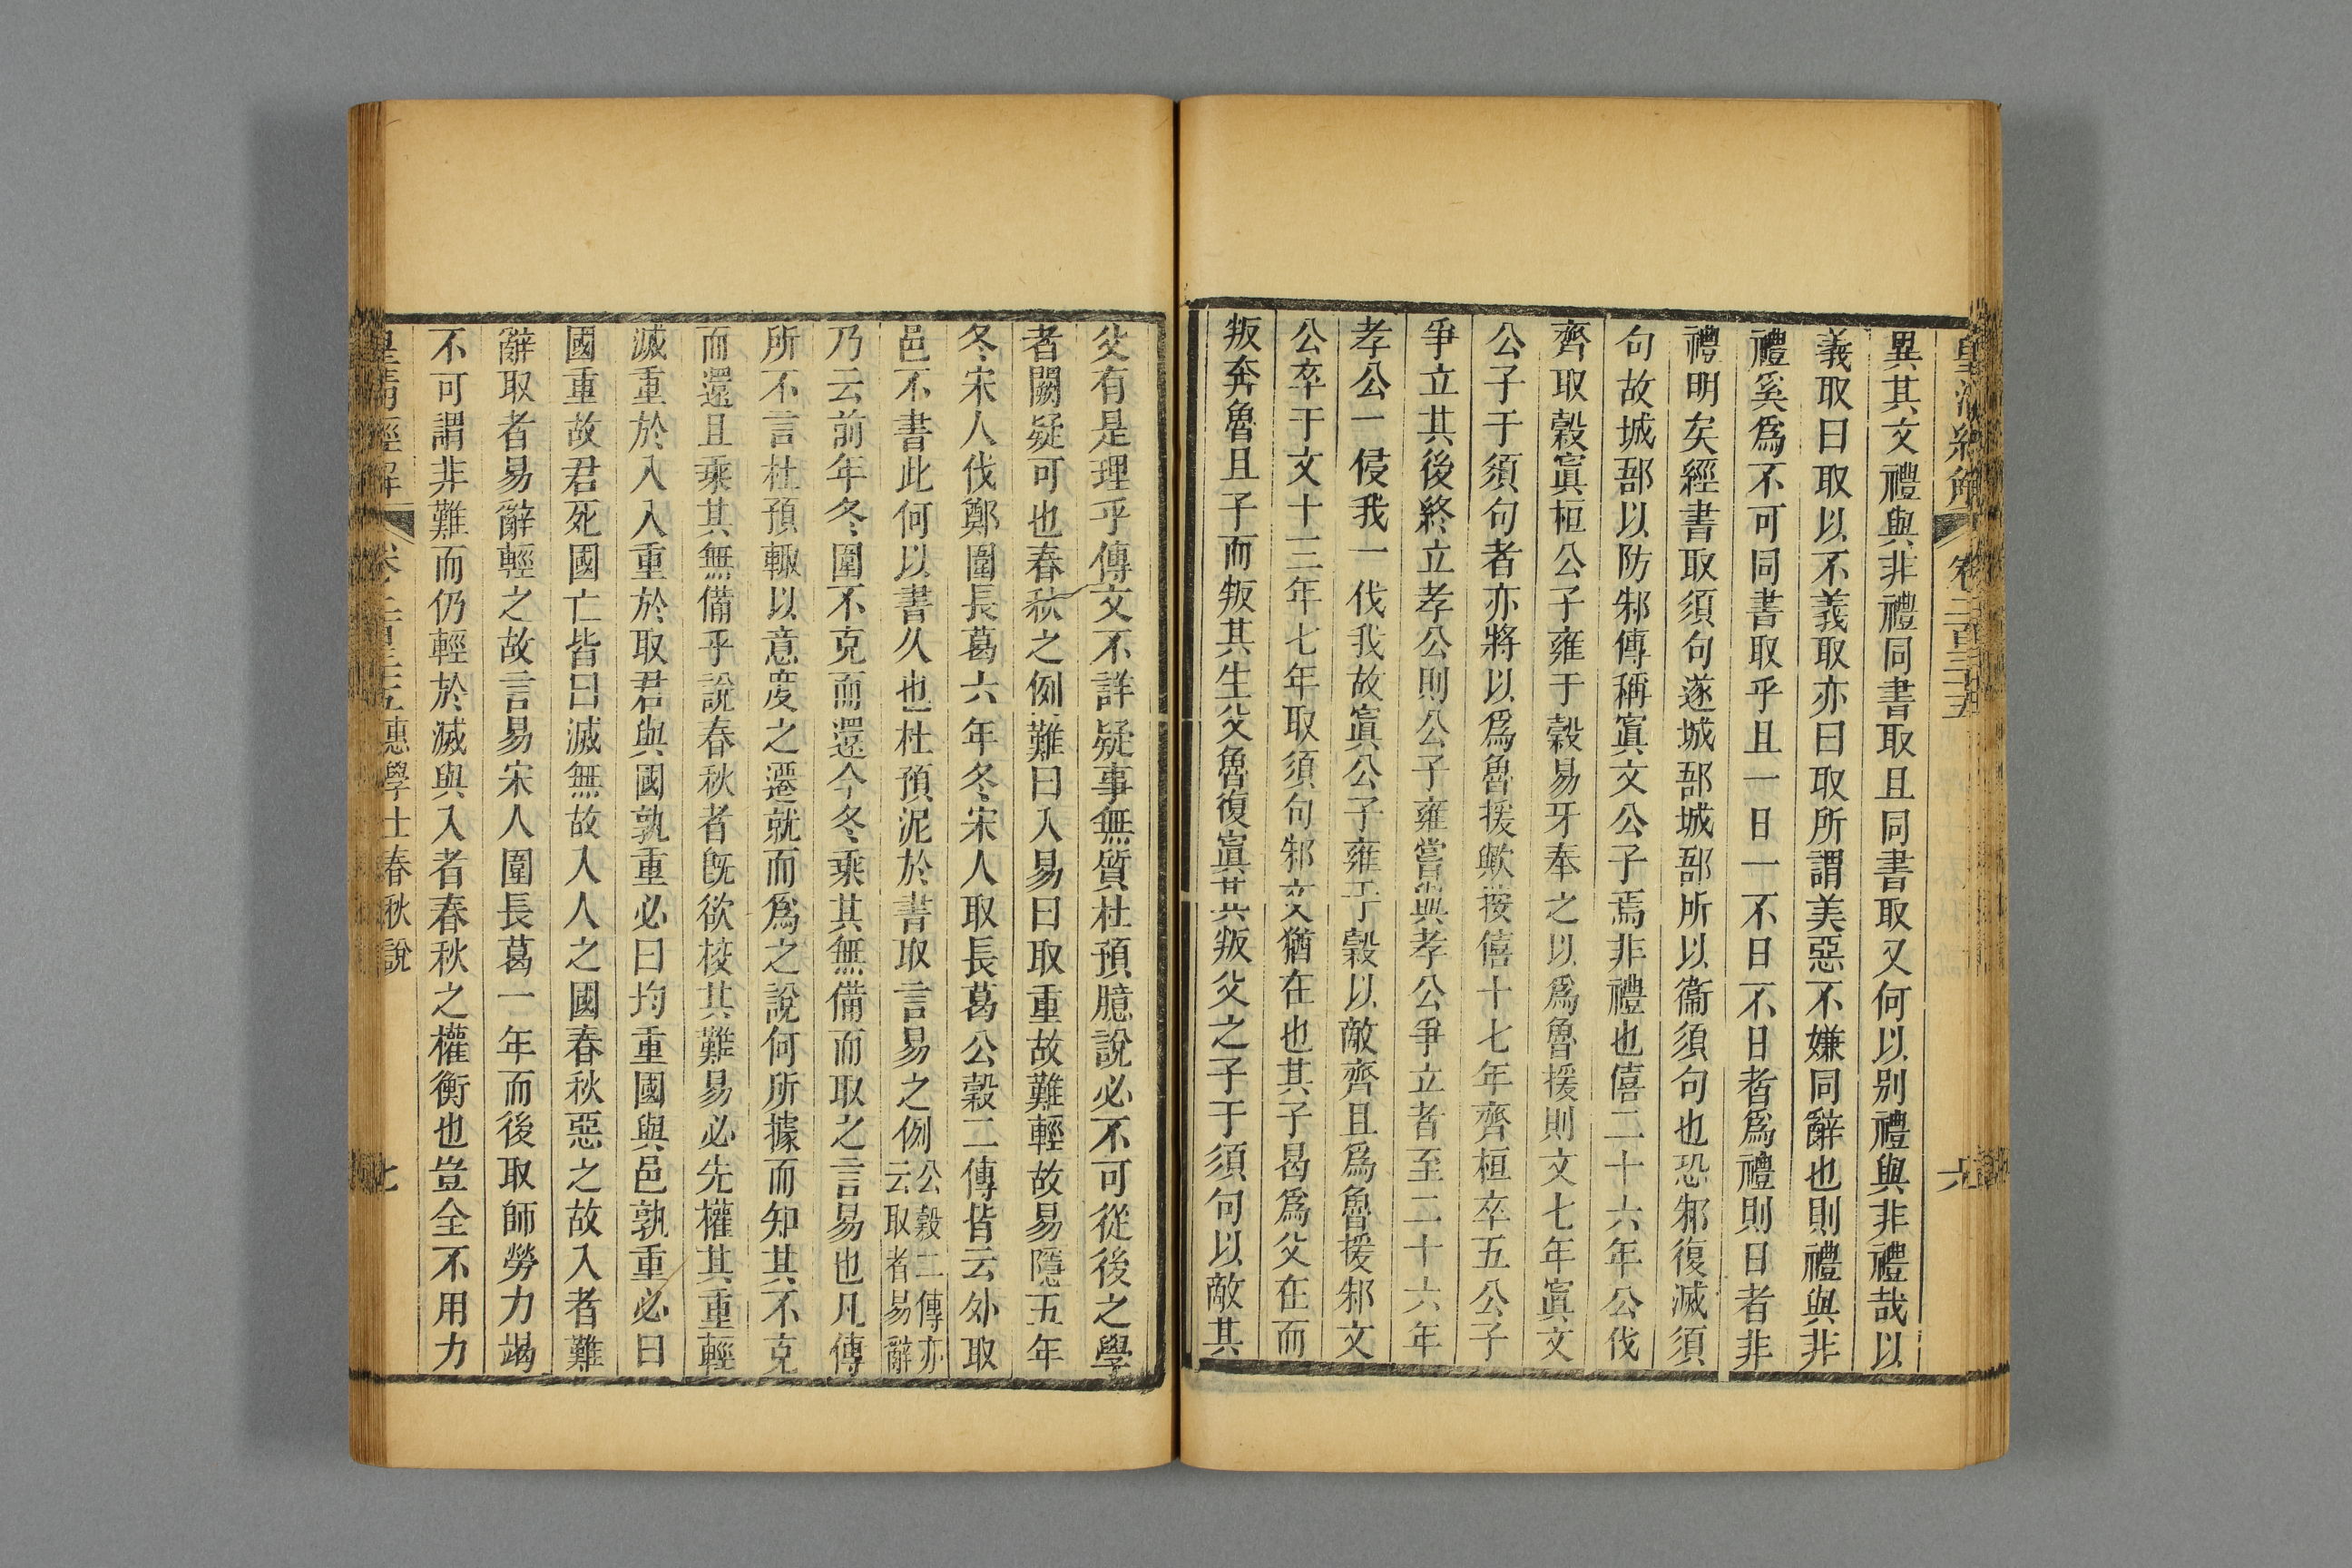 皇清經解 卷二百三十五 六
異其文禮與非禮同書取且同書取又何以别禮與非禮哉以
義取曰取以不義取亦曰取所謂美惡不嫌同辭也則禮與非
禮奚爲不可同書取乎且一日一不日不日者爲禮則日者非
禮明矣經書取須句遂城郚城郚所以衞須句也恐邾復滅須
句故城郚以防邾傳稱寘文公子焉非禮也僖二十六年公伐
齊取穀寘桓公子雍于穀易牙奉之以爲魯援則文七年寘文
公子于須句者亦將以爲魯援歟按僖十七年齊桓卒五公子
爭立其後終立孝公則公子雍嘗與孝公爭立者至二十六年
孝公一侵我一伐我故寘公子雍于穀以敵齊且爲魯援邾文
公卒于文十三年七年取須句邾文猶在也其子曷爲父在而
叛奔魯且子而叛其生父魯復寘其叛父之子于須句以敵其
父有是理乎傳文不詳疑事無質杜預臆說必不可從後之學
者闕疑可也春秋之例難曰入易曰取重故難輕故易隱五年
冬宋人伐鄭圍長葛六年冬宋人取長葛公穀二傳皆云外取
邑不書此何以書久也杜預泥於書取言易之例公穀二傳亦云取者易辭
乃云前年冬圍不克而還今冬乘其無備而取之言易也凡傳
所不言杜預輙以意度之遷就而爲之說何所據而知其不克
而還且乘其無備乎說春秋者旣欲校其難易必先權其重輕
滅重於入入重於取君與國孰重必曰均重國與邑孰重必曰
國重故君死國亡皆曰滅無故入人之國春秋惡之故入者難
辭取者易辭輕之故言易宋人圍長葛一年而後取師勞力竭
不可謂非難而仍輕於滅與入者春秋之權衡也豈全不用力
皇清經解 卷二百三十五 惠學士春秋說 七